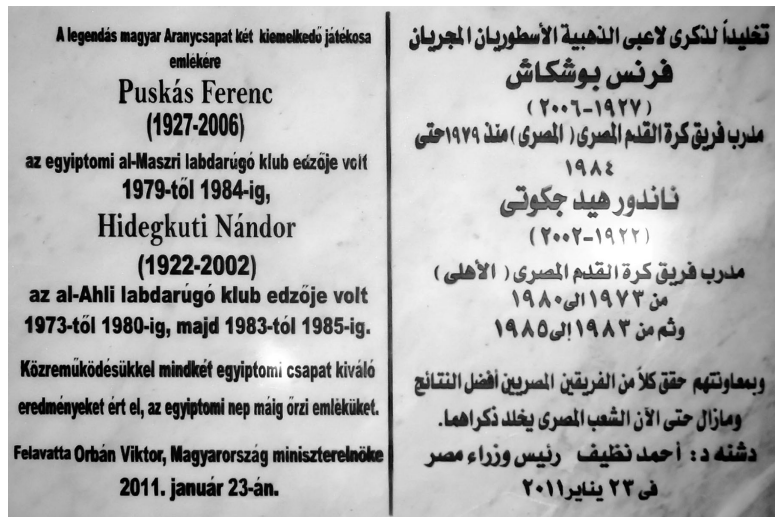 A legendás magyar Aranycsapat két kiemelkedő játékosa
emlékére
Puskás Ferenc
(1927-2006)
az egyiptomi al-Maszri labdarúgó klub edzője volt
1979-től 1984-ig,
Hidegkuti Nándor
(1922-2002)
az al-Ahli labdarúgó klub edzője volt
1973-tól 1980-ig, majd 1983-tól 1985-ig.
Közreműködésükkel mindkét egyiptomi csapat kiváló
eredményeket ért el, az egyiptomi nep máig őrzi emléküket.
Felavatta Orbán Viktor, Magyarország miniszterelnöke
2011. január 23-án.
تخليداً لذكرى لاعبى الذهبية الأسطوريان المجريان
فرنس بوشكاش
(١٩٢٧-٢٠٠٦)
مدرب فريق كرة القدم المصرى ( المصرى ) منذ ١٩٧٩ حتى
١٩٨٤
ناندور هيد جكوتى
(١٩٢٢-٢٠٠٢)
مدرب فريق كرة القدم المصرى ( الأهلى )
من ١٩٧٣ الى ١٩٨٠
وثم من ١٩٨٣ إلى ١٩٨٥
وبمعاونتهم حقق كلاً من الفريقين المصريين أفضل النتائج
ومازال حتى الآن الشعب المصرى يخلد ذكراهما.
دشنه د: أحمد نظيف رئيس وزراء مصر
فى ٢٣ يناير ٢٠١١